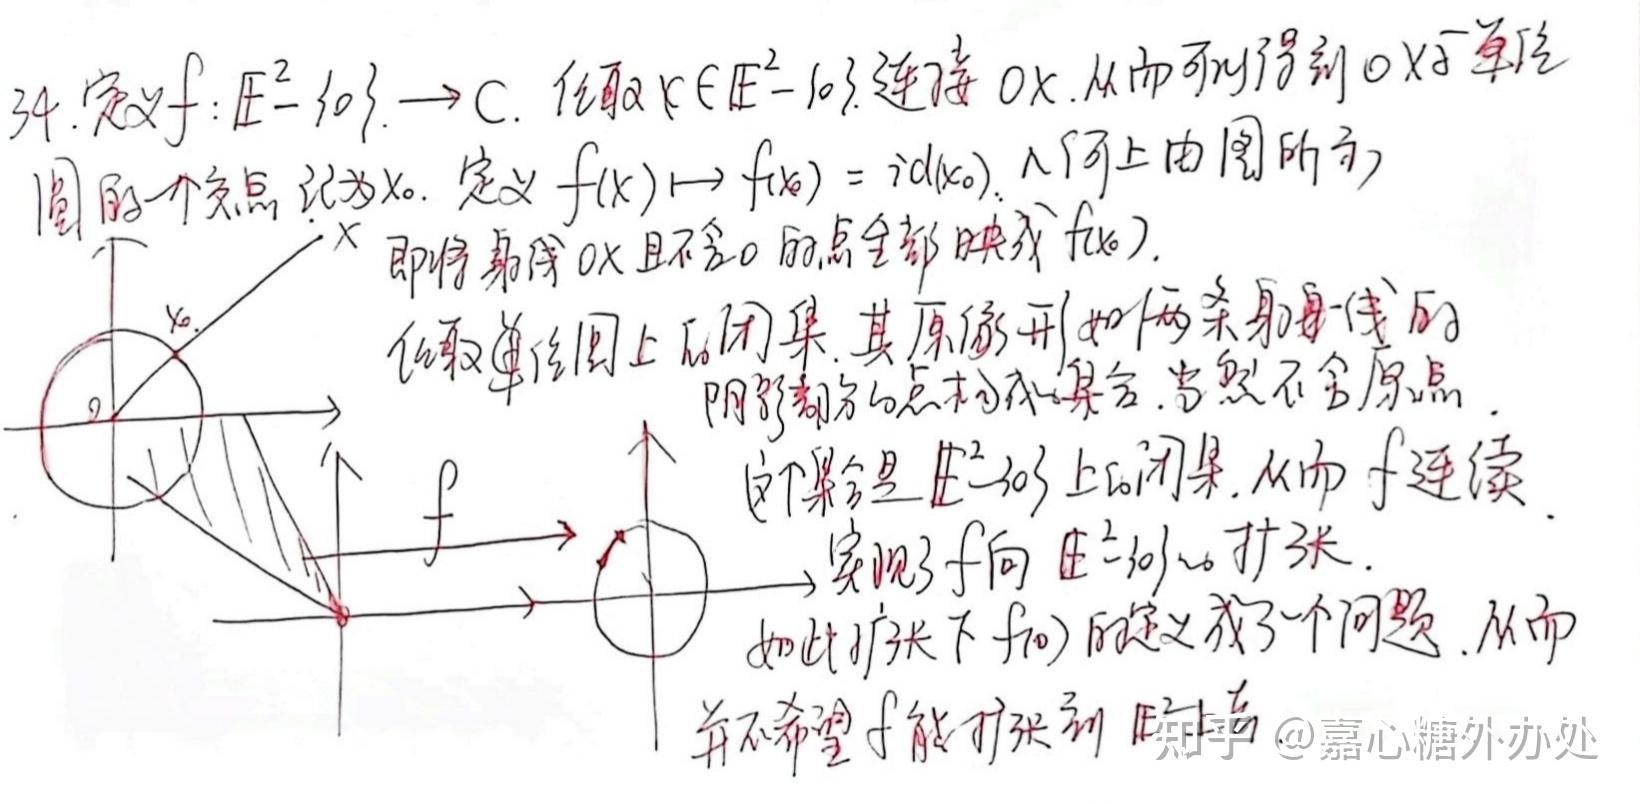 34. 定义 f: E²-{0}. → C. 任取 x∈E²-{0}. 连接 OX. 从而可以得到 OX与单位
圆的一个交点 记为 x₀. 定义 f(x) ↦ f(x₀) = id(x₀). 几何上由图所示,
X
即将射线 OX 且不含0的点全部映成 f(x₀).
x₀.
任取单位圆上的闭集. 其原像形如两条射线的
阴影部分的点构成的集合. 当然不含原点.
0
这个集合是 E²-{0} 上的闭集. 从而 f连续.
f
实现了 f向 E²-{0}的扩张.
如此扩张下 f(0) 的定义成了一个问题. 从而
并不希望 f 能扩张到 E²上去.
知乎 @嘉心糖外办处